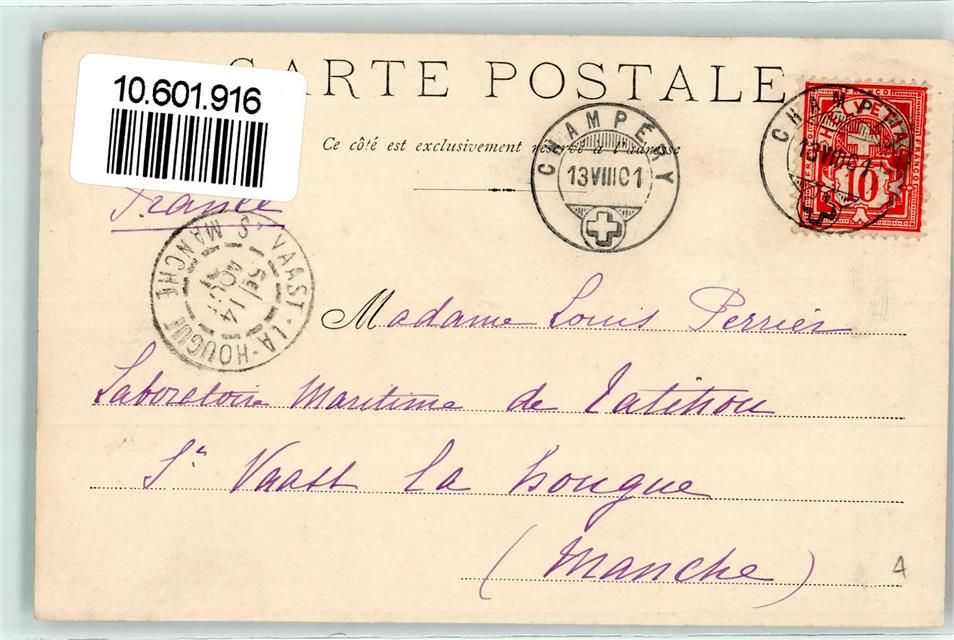 CARTE POSTALE
10.601.916
Ce côté est exclusivement réservé à l'adresse
CHAMPÉRY
13 VIII 01
CHAMPÉRY
13 VIII 01
HELVETIA
FRANCO
10
France
ST VAAST-LA-HOUGUE
MANCHE
14
AOUT
Madame Louis Perrier
Laboratoire Maritime de Tatihou
St Vaast La Hougue
(Manche)
A